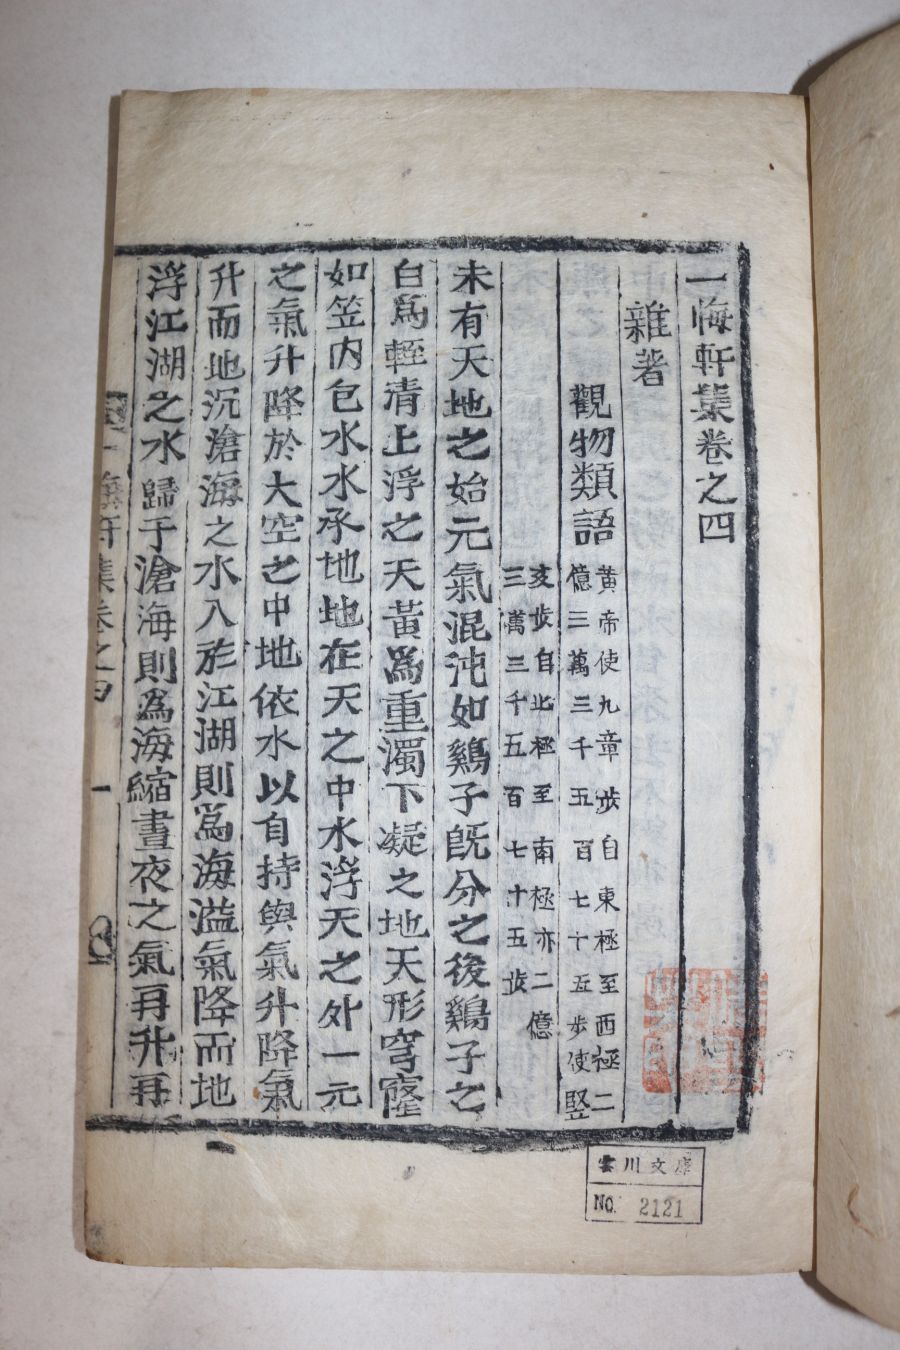 一悔軒集卷之四
雜著
觀物類語
黄帝使九章步自東極至西極二
億三萬三千五百七十五步使竪
亥步自北極至南極亦二億
三萬三千五百七十五步
未有天地之始元氣混沌如鷄子旣分之後鷄子之
白爲輕清上浮之天黃爲重濁下凝之地天形穹窿
如笠内包水水承地地在天之中水浮天之外一元
之氣升降於大空之中地依水以自持與氣升降氣
升而地沉滄海之水入於江湖則爲海溢氣降而地
浮江湖之水歸于滄海則爲海縮晝夜之氣再升再
軒集卷之四
一
雲川文庫
NO. 2121